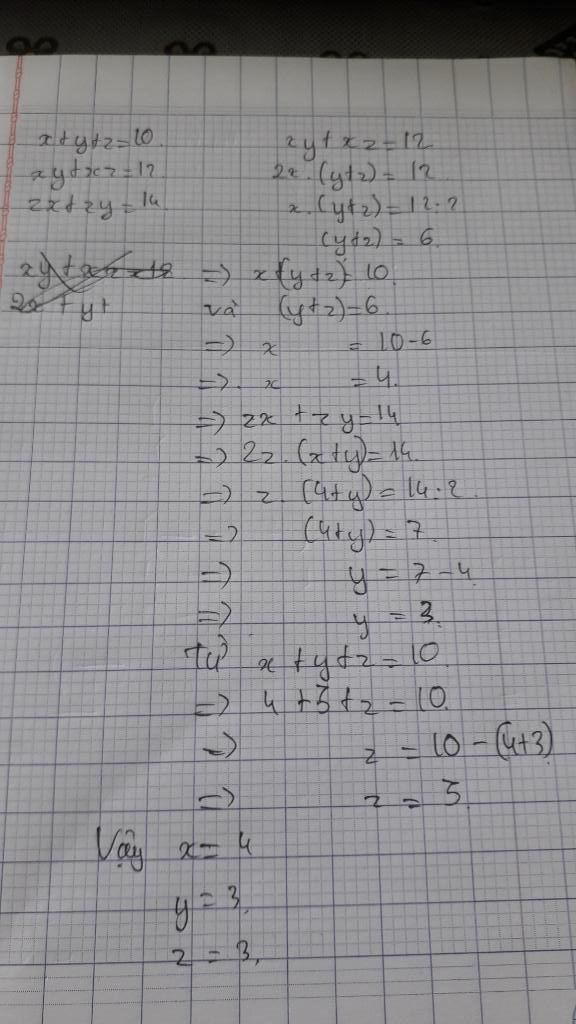 x+y+z=10
xy+xz=12
zx+zy=14
xy+xz=12
2x.(y+z)=12
x.(y+z)=12:2
(y+z)=6
=> x+(y+z)=10
và (y+z)=6
=> x = 10-6
=> x = 4.
=> zx + zy=14
=> 2z.(x+y)=14
=> z.(4+y)=14:2
=> (4+y)=7
=> y = 7-4
=> y = 3.
Từ x+y+z=10.
=> 4+3+z=10.
=> z = 10-(4+3)
=> z = 3
Vậy x=4
y=3,
z=3,